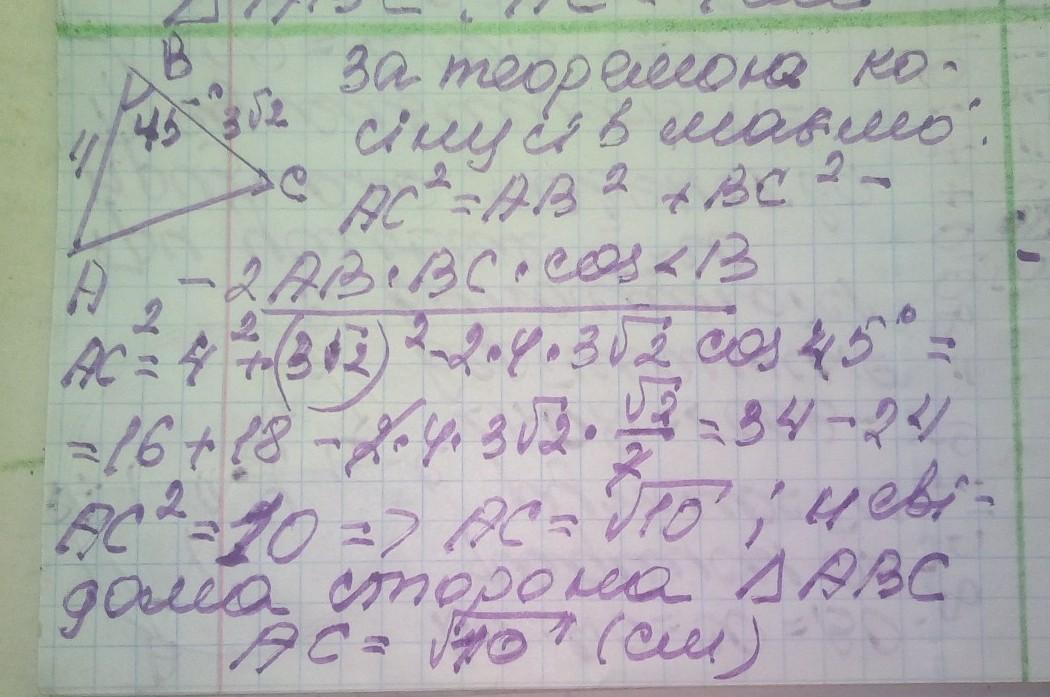 B
45° 3√2
4
C
A
За теоремою ко-
сінусів маємо:
AC² = AB² + BC² -
- 2AB · BC · cos < B
AC² = 4² + (3√2)² - 2 · 4 · 3√2 cos 45° =
= 16 + 18 - 2 · 4 · 3√2 · √2/2 = 34 - 24
AC² = 10 => AC = √10 ; н еві-
дома сторона Δ ABC
AC = √10 (см)